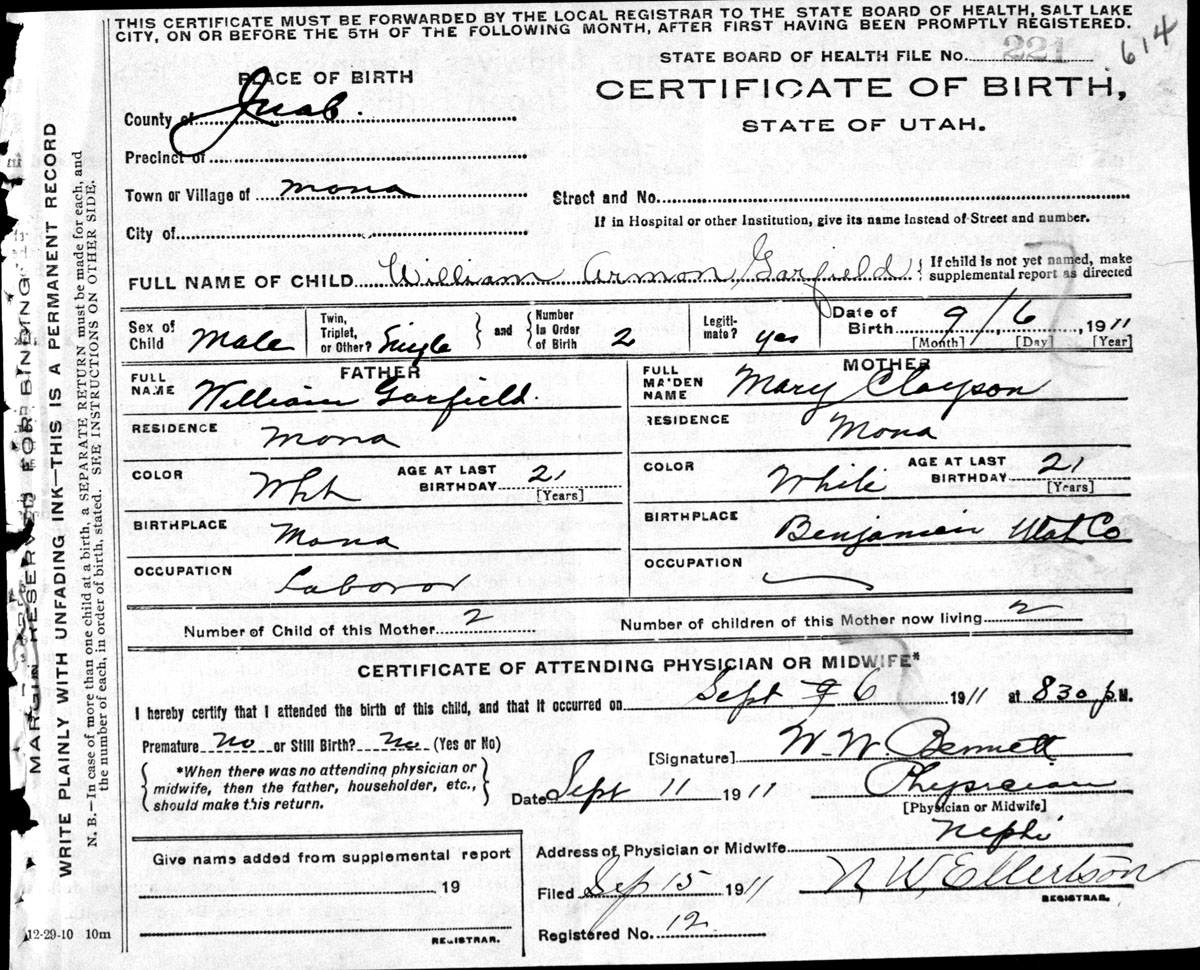 THIS CERTIFICATE MUST BE FORWARDED BY THE LOCAL REGISTRAR TO THE STATE BOARD OF HEALTH, SALT LAKE
CITY, ON OR BEFORE THE 5TH OF THE FOLLOWING MONTH, AFTER FIRST HAVING BEEN PROMPTLY REGISTERED.
614
STATE BOARD OF HEALTH FILE No. 221
PLACE OF BIRTH
CERTIFICATE OF BIRTH,
STATE OF UTAH.
County of Juab.
Precinct of
Town or Village of Mona
Street and No.
If in Hospital or other Institution, give its name instead of Street and number.
City of
FULL NAME OF CHILD William Armon Garfield { If child is not yet named, make
supplemental report as directed
Sex of Child Male
Twin, Triplet, or Other? Single
and
Number In Order of Birth 2
Legiti-mate? yes
Date of Birth 9/6, 1911
[Month] [Day] [Year]
FATHER
FULL NAME William Garfield.
RESIDENCE Mona
COLOR Wht
AGE AT LAST BIRTHDAY 21 [Years]
BIRTHPLACE Mona
OCCUPATION Laboror
MOTHER
FULL MAIDEN NAME Mary Clayson
RESIDENCE Mona
COLOR White
AGE AT LAST BIRTHDAY 21 [Years]
BIRTHPLACE Benjamin Utah Co
OCCUPATION
Number of Child of this Mother 2
Number of children of this Mother now living 2
CERTIFICATE OF ATTENDING PHYSICIAN OR MIDWIFE*
I hereby certify that I attended the birth of this child, and that it occurred on Sept 9 6 1911 at 830 p.M.
Premature No or Still Birth? No (Yes or No)
*When there was no attending physician or
midwife, then the father, householder, etc.,
should make this return.
[Signature] W. W. Bennett
Date Sept 11 1911 Physician
[Physician or Midwife]
Address of Physician or Midwife Nephi
Filed Sep 15 1911 N W. Ellertson
REGISTRAR.
Registered No. 12
Give name added from supplemental report
19
REGISTRAR.
12-29-10 10m
MARGIN RESERVED FOR BINDING
WRITE PLAINLY WITH UNFADING INK—THIS IS A PERMANENT RECORD
N. B.—In case of more than one child at a birth, a SEPARATE RETURN must be made for each, and
the number of each, in order of birth, stated. SEE INSTRUCTIONS ON OTHER SIDE.